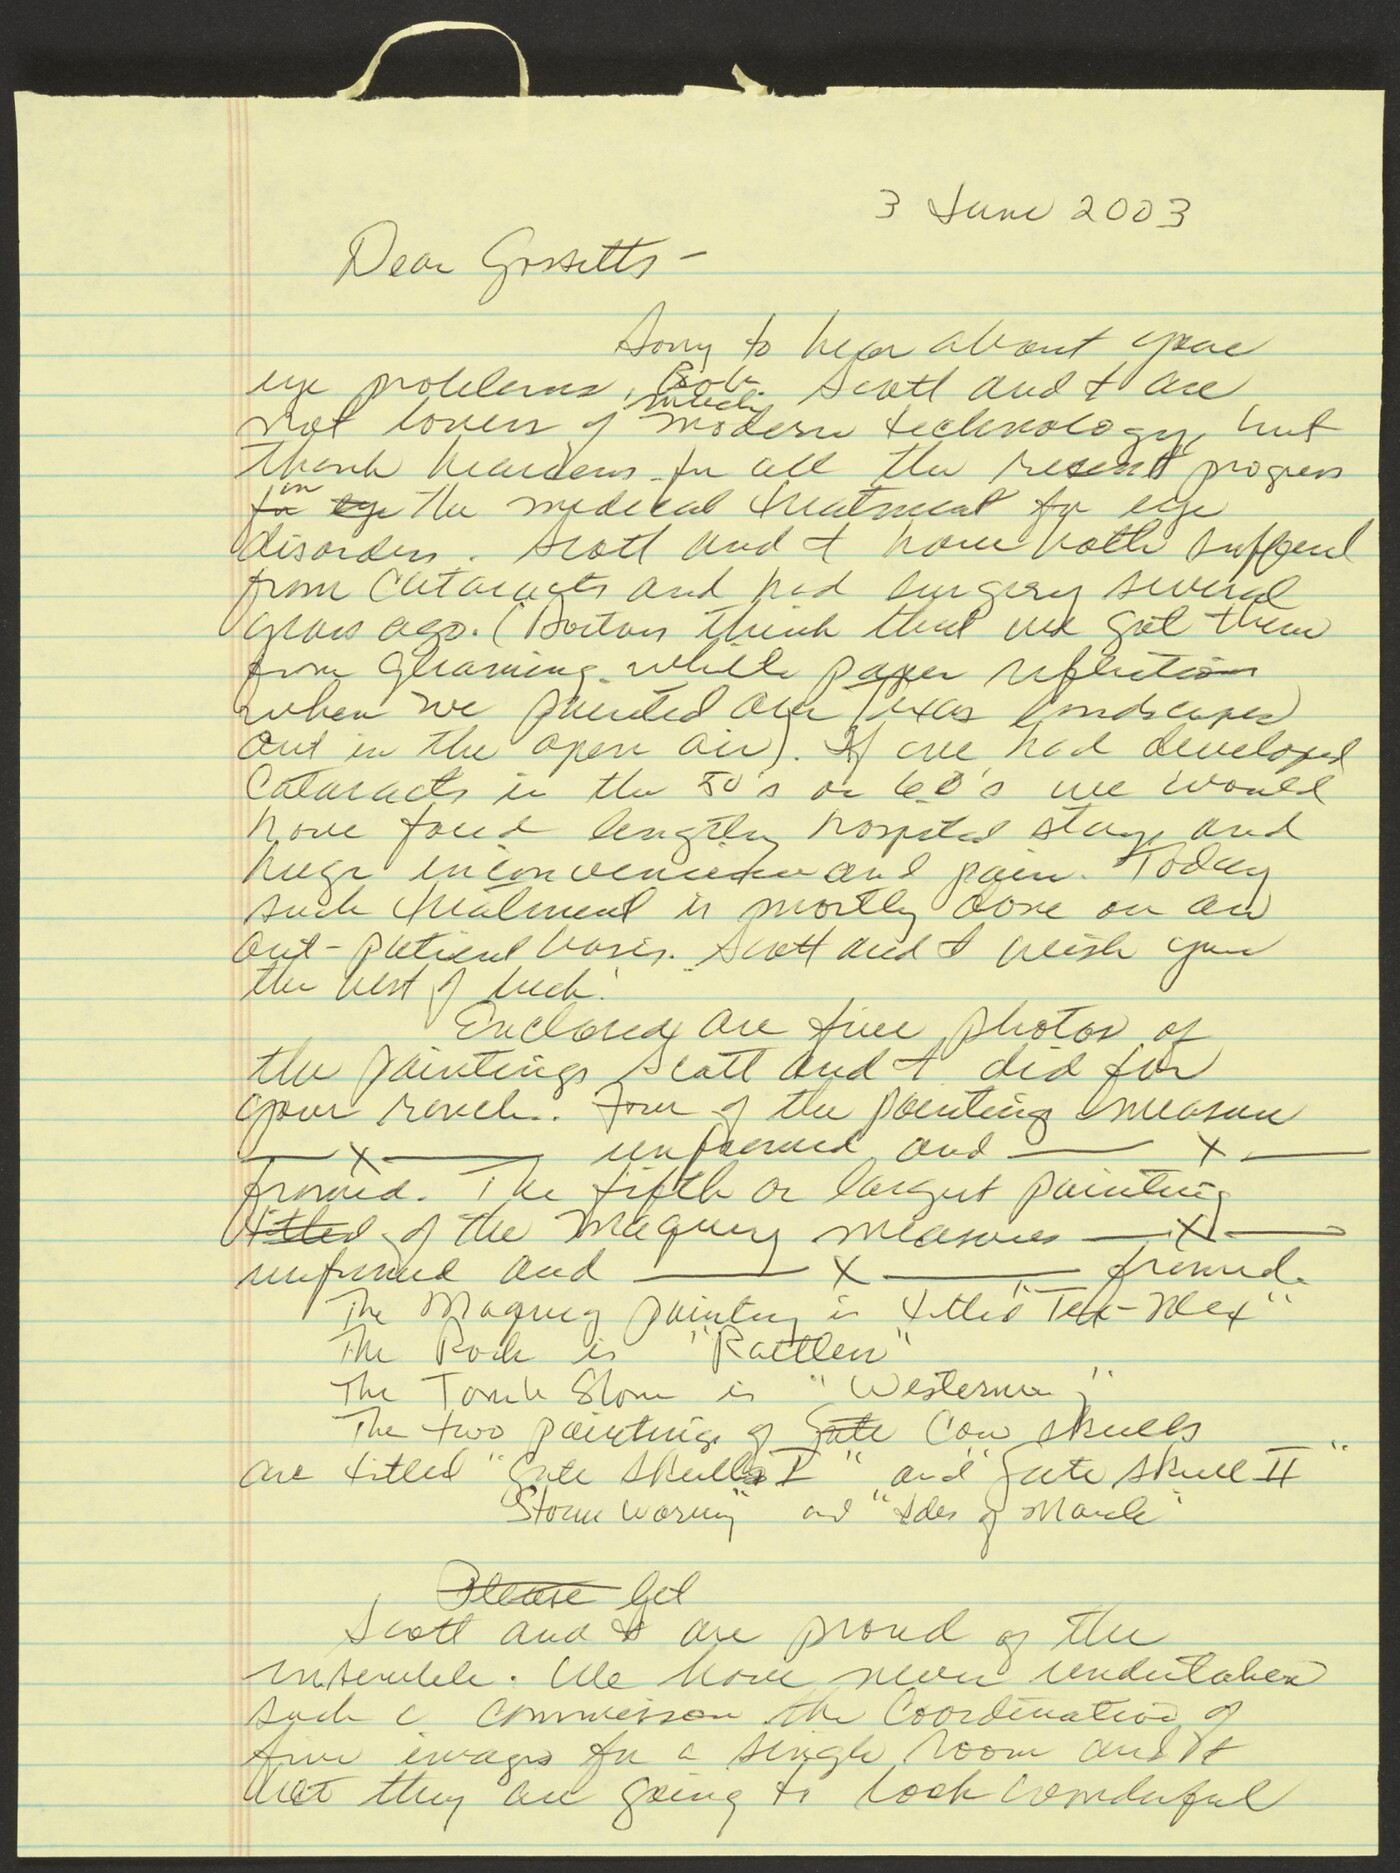 3 June 2003
Dear Gossetts –
Sorry to hear about your
eye problems, Bob. Scott and I are
not lovers of modern technology, but
thank heavens for all the recent progress
for in eye the medical treatment for eye
disorders. Scott and I have both suffered
from cataracts and had surgery several
years ago. (Doctors think that we got them
from gleaming white paper reflections
when we painted our Texas landscapes
out in the open air). If we had developed
cataracts in the 50's or 60's we would
have faced lengthy hospital stays and
huge inconvenience and pain. Today
such treatment is mostly done on an
out-patient basis. Scott and I wish you
the best of luck!
Enclosed are five photos of
the paintings Scott and I did for
your ranch. Four of the paintings measure
— x — unframed and — x —
framed. The fifth or largest painting
titled of the Maguey measures — x —
unframed and — x — framed.
The Maguey painting is titled "Tex-Mex"
The Rock is "Rattlers"
The Tomb Stone is "Westerner,"
The two paintings of Gate Cow skulls
are titled "Gate Skull I" and "Gate Skull II"
"Storm Warning" and "Ides of March"
Please let
Scott and I are proud of the
ensemble. We have never undertaken
such a commission the coordination of
five images for a single room and I
bet they are going to look wonderful